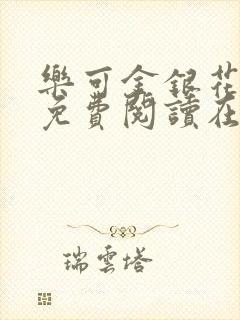 樂可金銀花
免費閱讀在
瑞雲塔